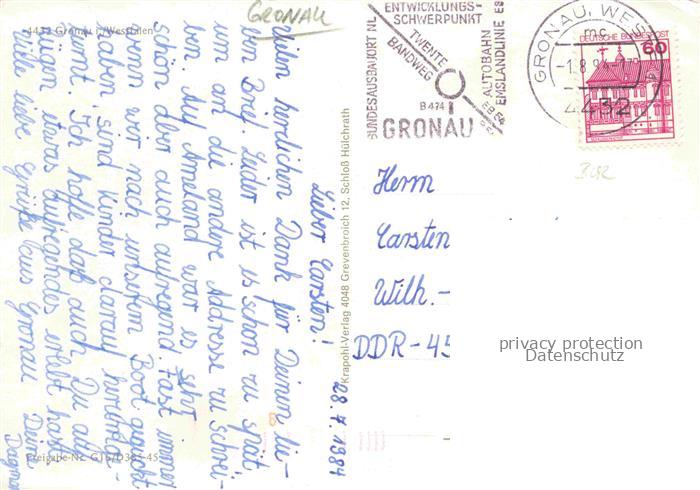 GRONAU
4432 Gronau i./Westfalen
28.7.1984
Lieber Carsten!
Vielen herzlichen Dank für Deinen lie-
ben Brief. Leider ist es schon zu spät,
um an die andere Adresse zu schrei-
ben. Auf Ameland war es sehr
schön aber auch aufregend. Fast immer
wenn wir nach unserem Boot geguckt
haben, sind Kinder darauf
Ich hoffe daß auch Du auf
Rügen etwas aufregendes erlebt hast.
Viele liebe Grüße aus Gronau Deine
Dagmar
Freigabe-Nr. 45
Krapohl-Verlag 4048 Grevenbroich 12, Schloß Hülchrath
ENTWICKLUNGS-
SCHWERPUNKT
BUNDESAUSBAUORT NL
TWENTE
BANDWEG
AUTOBAHN
EMSLANDLINIE
B 474
GRONAU
GRONAU, WESTF
mc
-1.8.84-
4432
DEUTSCHE BUNDESPOST
60
Herrn
Carsten
Wilh.-
DDR-45
privacy protection
Datenschutz